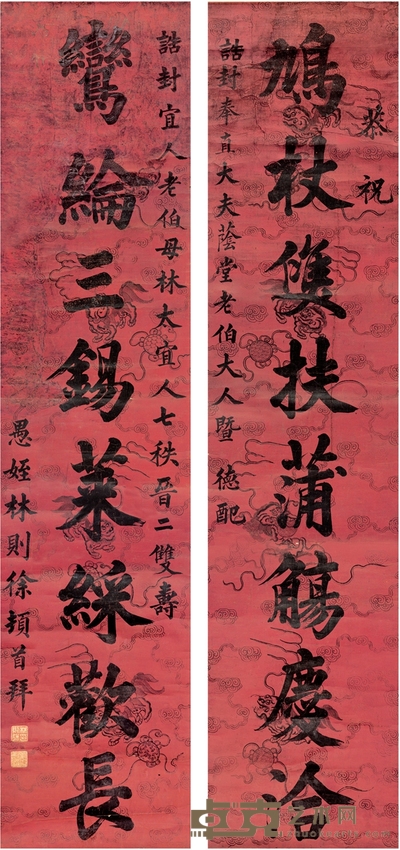 恭祝
鳩杖雙扶蒲觴慶洽
誥封奉直大夫蔭堂老伯大人暨德配
誥封宜人老伯母林太宜人七秩晉二雙壽
鸞綸三錫萊綵歡長
愚姪林則徐頓首拜
卓克艺术网